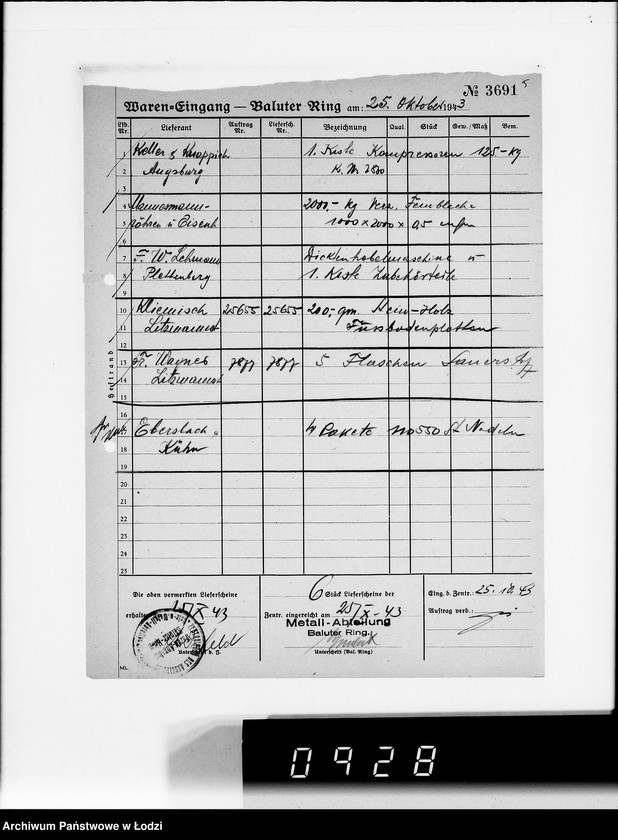 № 3691
Waren=Eingang — Baluter Ring am: 25. Oktober 1943
Lfd. Nr. Lieferant Auftrag Nr. Liefersch. Nr. Bezeichnung Qual. Stück Gew./Maß Bem.
1 Keller & Knappich 1. Kiste Kompressoren 125 - Kg
2 Augsburg K. Nr 2800
3
4 Mannesmann- 2000- Kg Verz. Feinbleche
5 röhren u Eisenh 1000 x 2000 x 0,5 m/m
6
7 F. W. Lehmann Dickenhobelmaschine u
8 Plettenberg 1. Kiste Zubehörteile
9
10 Kliemisch 25655 25655 200,- qm. Stein-Holz
11 Litzmannst Fussbodenplatten
12
13 Fr. Wagner 7877 7877 5 Flaschen Sauerstoff
14 Litzmannst
15
Heftrand
16
17 Ebersbach 4 Pakete 110550 St Nadeln
18 Kühn
19
20
21
22
23
24
25
Die oben vermerkten Lieferscheine
erhalten 25/X 43
Unterschrift b. J.
6 Stück Lieferscheine der
Zentr. eingereicht am 25/X - 43
Metall-Abteilung
Baluter Ring.
Unterschrift (Bal. Ring)
Eing. b. Zentr.: 25.10.43
Auftrag verb.:
ML.
0928
Archiwum Państwowe w Łodzi